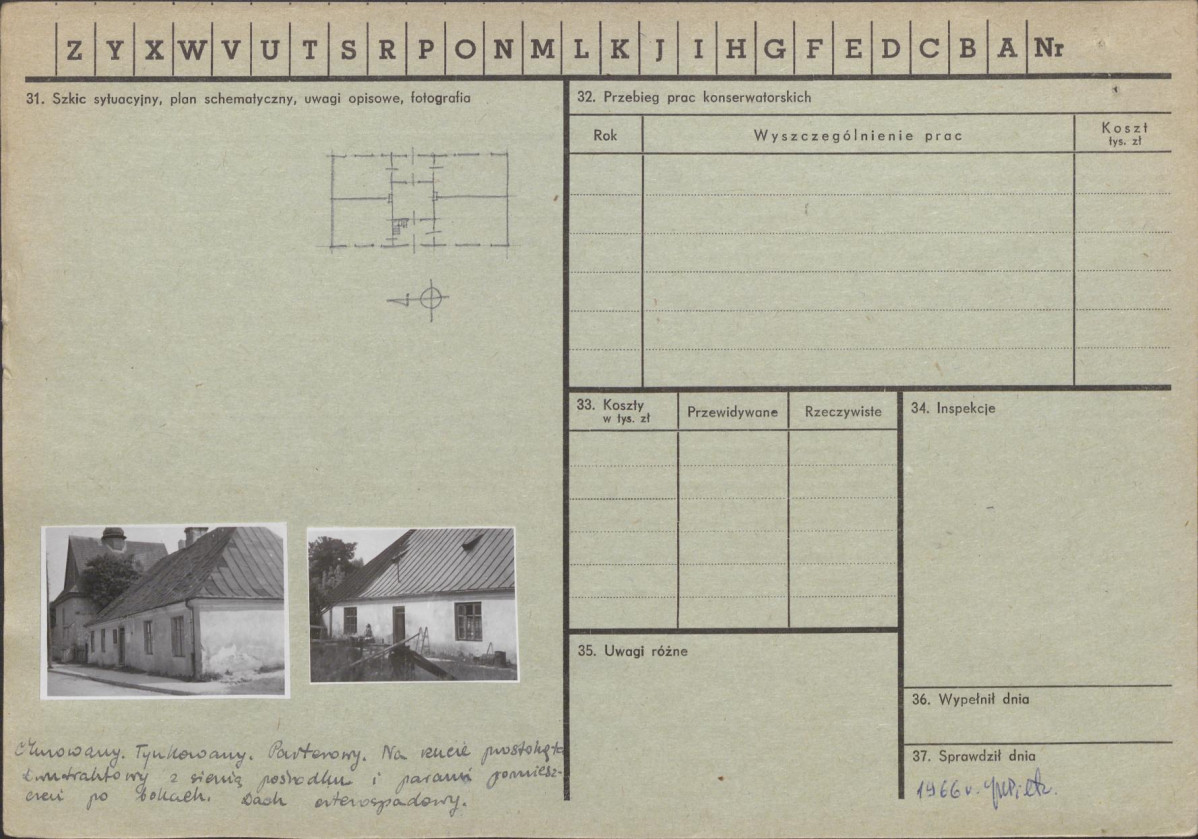 Z Y X W V U T S R P O N M L K J I H G F E D C B A Nr
31. Szkic sytuacyjny, plan schematyczny, uwagi opisowe, fotografia
Murowany. Tynkowany. Parterowy. Na rzucie prostokąta
dwutraktowy z sienią pośrodku i parami pomiesz-
czeń po bokach. Dach czterospadowy.
32. Przebieg prac konserwatorskich
Rok Wyszczególnienie prac Koszt
tys. zł
33. Koszty
w tys. zł
Przewidywane Rzeczywiste
34. Inspekcje
35. Uwagi różne
36. Wypełnił dnia
37. Sprawdził dnia
1966 r.